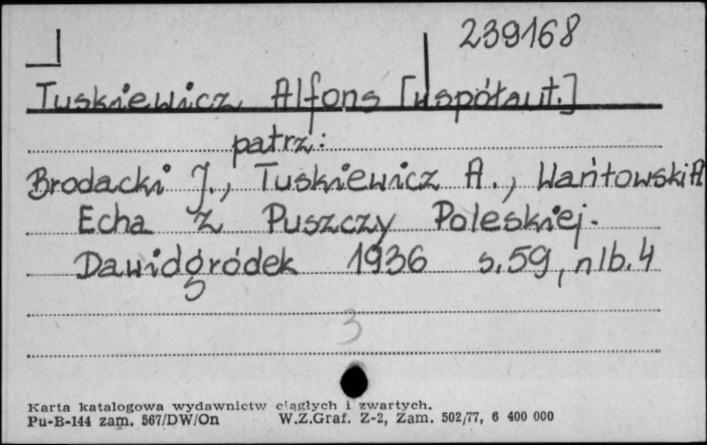 239168
Tuskiewicz Alfons [współaut.]
patrz:
Brodacki J., Tuskiewicz A., Wańtowski A
Echa z Puszczy Poleskiej.
Dawidgródek 1936 s. 59, nlb. 4
3
Karta katalogowa wydawnictw ciągłych i zwartych.
Pu-B-144 zam. 567/DW/On W.Z.Graf. Z-2, Zam. 502/77, 6 400 000